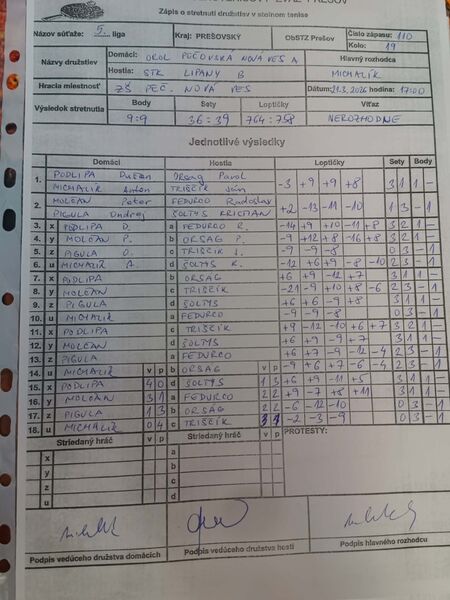 Zápis o stretnutí družstiev v stolnom tenise
Názov súťaže: 5. liga Kraj: PREŠOVSKÝ ObSTZ Prešov Číslo zápasu: 110
Kolo: 19
Názvy družstiev Domáci: OROL PEČOVSKÁ NOVÁ VES A Hlavný rozhodca
Hostia: STK LIPANY B MICHALÍK
Hracia miestnosť ZŠ PEČ. NOVÁ VES Dátum: 21.3.2026 hodina: 17:00
Výsledok stretnutia Body Sety Loptičky Víťaz
9:9 36:39 764:758 NEROZHODNE
Jednotlivé výsledky
Domáci Hostia Loptičky Sety Body
1. PODLIPA Dušan ORSAG Pavol
MICHALÍK Anton TRIŠČÍK Ján -3 +9 +9 +8 3 1 1 -
2. MOLČAN Peter FEDURCO Radoslav
PIGULA Ondrej ŠOLTYS KRISTIAN +2 -13 -11 -10 1 3 - 1
3. x PODLIPA D. a FEDURCO R. -14 +9 +10 -11 +8 3 2 1 -
4. y MOLČAN P. b ORSAG P. -9 +12 +8 -16 +8 3 2 1 -
5. z PIGULA O. c TRIŠČÍK J. -9 -9 -8 0 3 - 1
6. u MICHALÍK A. d ŠOLTYS K. -12 +6 +9 -8 -10 2 3 - 1
7. x PODLIPA b ORSAG +6 +9 -12 +7 3 1 1 -
8. y MOLČAN c TRIŠČÍK -21 -9 +10 +8 -6 2 3 - 1
9. z PIGULA d ŠOLTYS +6 +6 -9 +8 3 1 1 -
10. u MICHALÍK a FEDURCO -9 -9 -8 0 3 - 1
11. x PODLIPA c TRIŠČÍK +9 -12 -10 +6 +7 3 2 1 -
12. y MOLČAN d ŠOLTYS +6 +9 -9 +7 3 1 1 -
13. z PIGULA a FEDURCO +6 +7 -9 -12 -4 2 3 - 1
14. u MICHALÍK v p b ORSAG v p -9 +6 +7 -6 -4 2 3 - 1
15. x PODLIPA 4 0 d ŠOLTYS 1 3 +6 +9 -11 +5 3 1 1 -
16. y MOLČAN 3 1 a FEDURCO 2 2 +9 -7 +8 +11 3 1 1 -
17. z PIGULA 1 3 b ORSAG 2 2 -6 -12 -10 0 3 - 1
18. u MICHALÍK 0 4 c TRIŠČÍK -2 -3 -9 0 3 - 1
Striedaný hráč v p Striedaný hráč v p PROTESTY:
x a
y b
z c
u d
Podpis vedúceho družstva domácich Podpis vedúceho družstva hostí Podpis hlavného rozhodcu